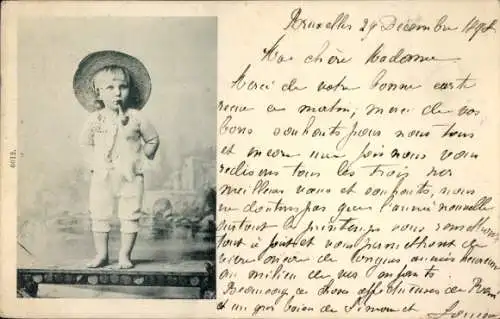 Bruxelles 29 Décembre
Ma chère Madame
Merci de votre bonne carte
reçue ce matin, merci de vos
bons souhaits pour nous tous
et encore une fois nous vous
redisons tous les trois nos
meilleurs vœux et souhaits, nous
ne doutons pas que l'année nouvelle
surtout le printemps vous
tout à fait et vous permettront de
vivre encore de longues années heureuses
au milieu de vos enfants.
Beaucoup de choses affectueuses de
et un gros baiser de Simone et
6613.